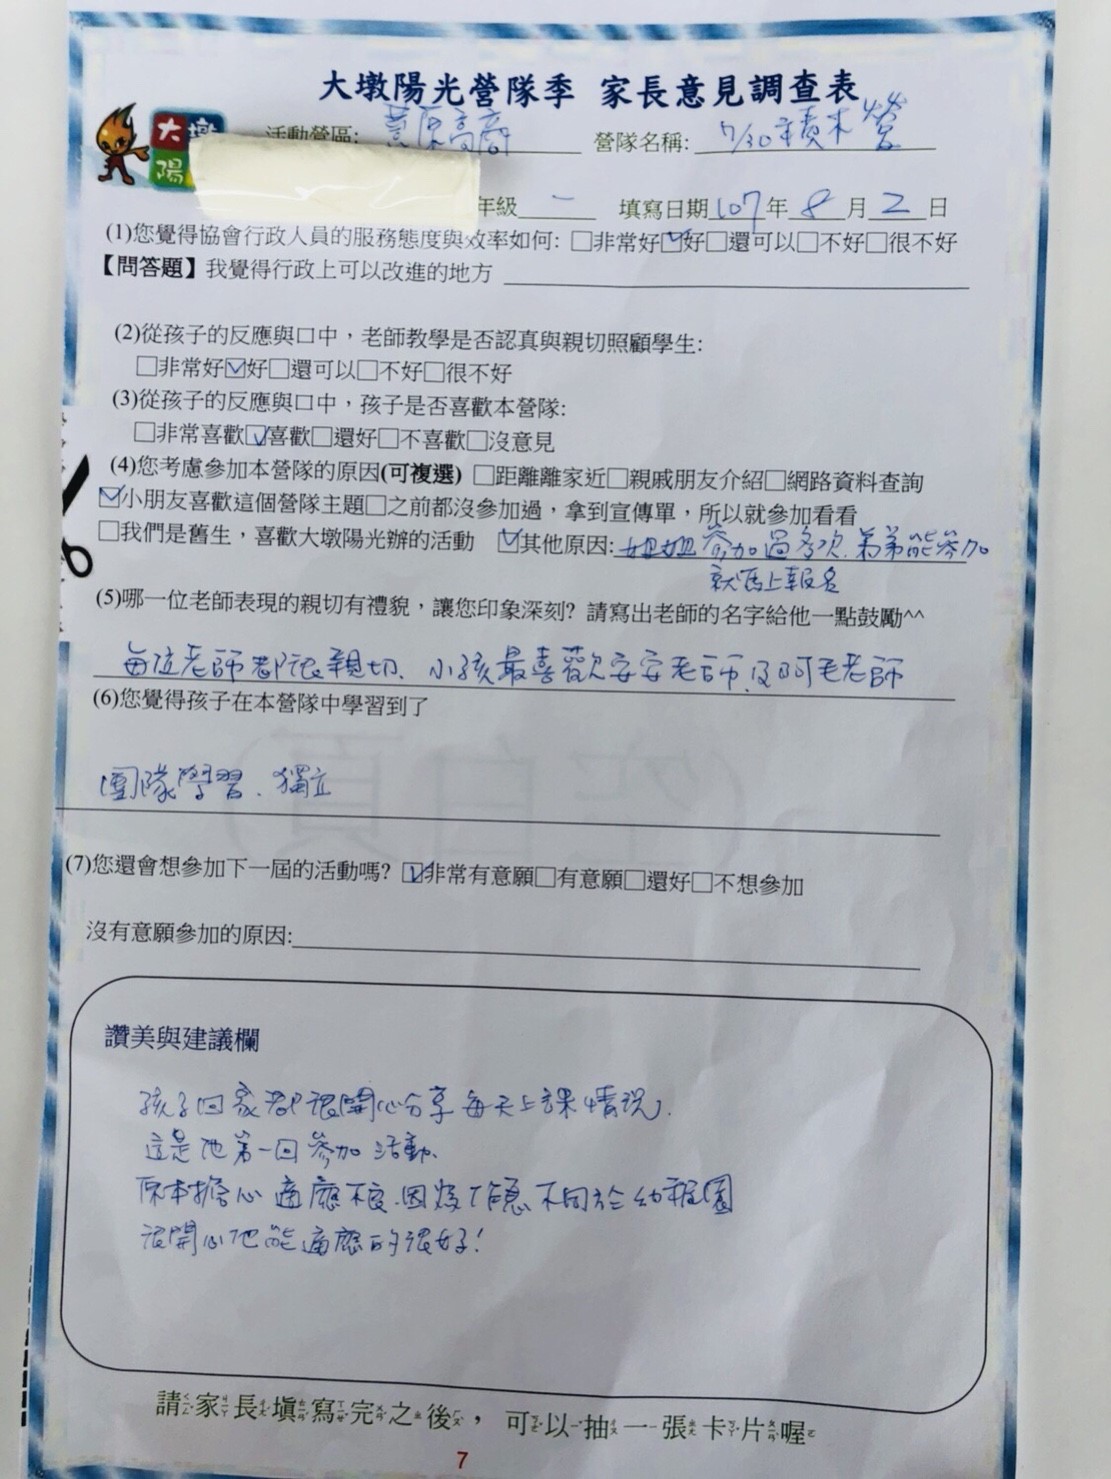 大墩陽光營隊季 家長意見調查表
大墩
陽
活動營區: 豐原高商 營隊名稱: 7/30積木營
年級 一 填寫日期107年8月2日
(1)您覺得協會行政人員的服務態度與效率如何: □非常好☑好□還可以□不好□很不好
【問答題】我覺得行政上可以改進的地方
(2)從孩子的反應與口中，老師教學是否認真與親切照顧學生:
□非常好☑好□還可以□不好□很不好
(3)從孩子的反應與口中，孩子是否喜歡本營隊:
□非常喜歡☑喜歡□還好□不喜歡□沒意見
(4)您考慮參加本營隊的原因(可複選) □距離離家近□親戚朋友介紹□網路資料查詢
☑小朋友喜歡這個營隊主題□之前都沒參加過，拿到宣傳單，所以就參加看看
□我們是舊生，喜歡大墩陽光辦的活動 ☑其他原因: 姐姐參加過多次.弟弟能參加
就馬上報名
(5)哪一位老師表現的親切有禮貌，讓您印象深刻? 請寫出老師的名字給他一點鼓勵^^
每位老師都很親切、小孩最喜歡安安老師及阿毛老師
(6)您覺得孩子在本營隊中學習到了
團隊學習、獨立
(空白頁)
(7)您還會想參加下一屆的活動嗎? ☑非常有意願□有意願□還好□不想參加
沒有意願參加的原因:
讚美與建議欄
孩子回家都很開心分享每天上課情況.
這是他第一回參加活動、
原本擔心適應不良.因為作息不同於幼稚園
很開心他能適應的很好!
請家長填寫完之後，可以抽一張卡片喔
7